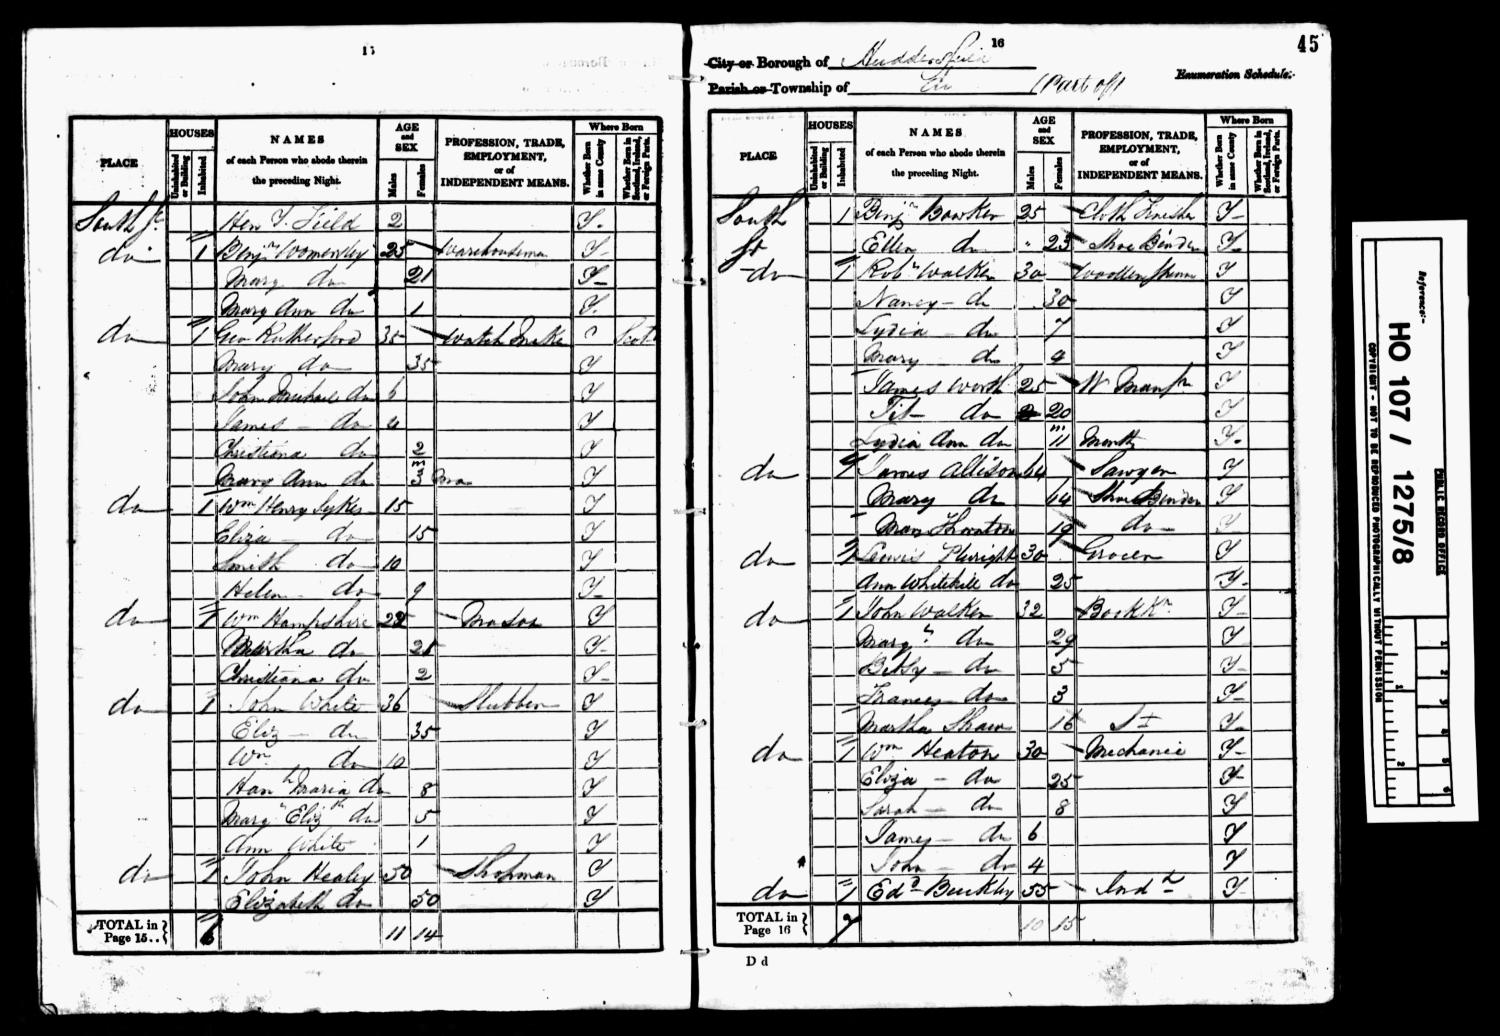 15
PLACE
HOUSES
Uninhabited or Building
Inhabited
NAMES
of each Person who abode therein the preceding Night.
AGE and SEX
Males
Females
PROFESSION, TRADE, EMPLOYMENT, or of INDEPENDENT MEANS.
Where Born
Whether Born in same County
Whether Born in Scotland, Ireland, or Foreign Parts.
South St Hen J. Field 2 Y
do 1 Benjn 25 Warehouseman Y
Mary do 21 Y
Mary Ann do 1 Y
do 1 Geo Rutherford 35 Watch Make Scot
Mary do 35 Y
John Michael do 6 Y
James do 4 Y
Christiana do 2 Y
Mary Ann do m 3 Y
do 1 Wm Henry Sykes 15 Y
Eliza do 15 Y
Smith do 10 Y
Helen do 9 Y
do 1 Wm Hampshire 22 Mason Y
Martha do 21 Y
Christiana do 2 Y
do 1 John White 36 Slubber Y
Eliz do 35 Y
Wm do 10 Y
Hanh Maria do 8 Y
Mary Elizth do 5 Y
Ann White 1 Y
do 1 John Healey 50 Shopman Y
Elizabeth do 50 Y
TOTAL in Page 15.. 6 11 14
16
45
City or Borough of Huddersfield
Parish or Township of (Part of)
Enumeration Schedule.
PLACE
HOUSES
Uninhabited or Building
Inhabited
NAMES
of each Person who abode therein the preceding Night.
AGE and SEX
Males
Females
PROFESSION, TRADE, EMPLOYMENT, or of INDEPENDENT MEANS.
Where Born
Whether Born in same County
Whether Born in Scotland, Ireland, or Foreign Parts.
South 1 Benjn Bowker 25 Cloth Finisher Y
St Ellen do 25 Shoe Binder Y
do 1 Robt Walker 30 Woollen Y
Nancy do 30 Y
Lydia do 7 Y
Mary do 4 Y
James Worth 25 W Manfr Y
do 20 Y
Lydia Ann do m 11 Month Y
do 1 James Allison 64 Sawyer Y
Mary do 64 Shoe Binder Y
Thornton 19 do Y
do 1 Lewis 30 Grocer Y
Ann Whitehill do 25 Y
do 1 John Walker 32 Bookkr Y
Margt do 29 Y
Betsy do 5 Y
Frances do 3 Y
Martha Shaw 16 Y
do 1 Wm Heaton 30 Mechanic Y
Eliza do 25 Y
Sarah do 8 Y
James do 6 Y
John do 4 Y
do 1 Edd Buckley 55 Indt Y
TOTAL in Page 16 7 10 15
D d
Reference:-
HO 107 / 1275/8
PUBLIC RECORD OFFICE
COPYRIGHT - NOT TO BE REPRODUCED PHOTOGRAPHICALLY WITHOUT PERMISSION